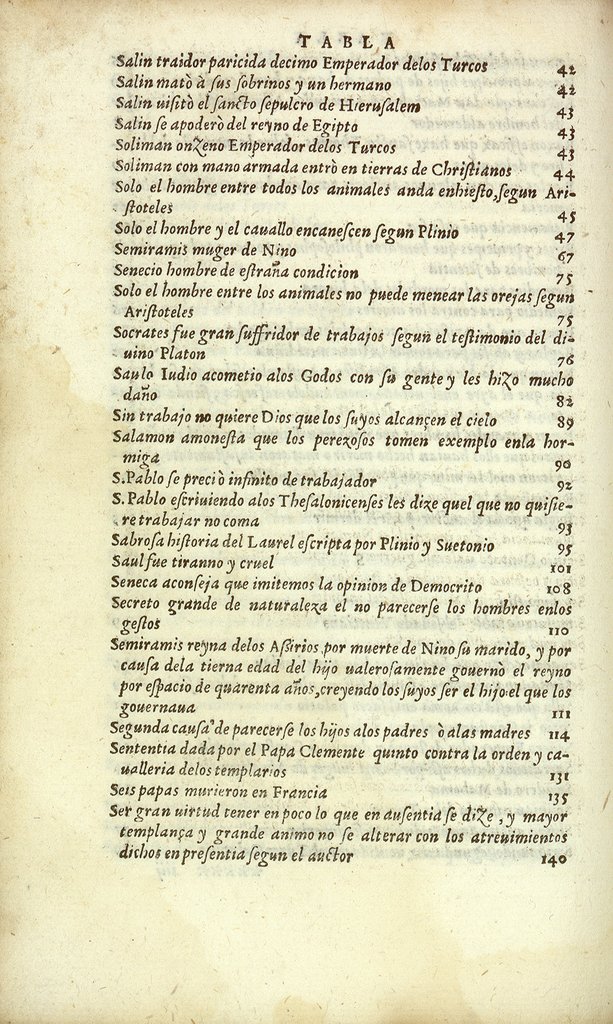 TABLA
Salin traidor paricida decimo Emperador delos Turcos 42
Salin matò à ſus ſobrinos y un hermano 42
Salin uiſitò el ſancto ſepulcro de Hieruſalem 43
Salin ſe apoderò del reyno de Egipto 43
Soliman onZeno Emperador delos Turcos 43
Soliman con mano armada entrò en tierras de Chriſtianos 44
Solo el hombre entre todos los animales anda enhieſto, ſegun Ari-
ſtoteles 45
Solo el hombre y el cauallo encaneſcen ſegun Plinio 47
Semiramis muger de Nino 67
Senecio hombre de eſtraña condicion 75
Solo el hombre entre los animales no puede menear las orejas ſegun
Ariſtoteles 75
Socrates fue gran ſuffridor de trabajos ſegun el teſtimonio del di-
uino Platon 76
Saulo Iudio acometio alos Godos con ſu gente y les hiZo mucho
daño 82
Sin trabajo no quiere Dios que los ſuyos alcançen el cielo 89
Salamon amoneſta que los perezoſos tomen exemplo enla hor-
miga 90
S. Pablo ſe preciò infinito de trabajador 92
S. Pablo eſcriuiendo alos Theſalonicenſes les dize quel que no quiſie-
re trabajar no coma 93
Sabroſa hiſtoria del Laurel eſcripta por Plinio y Suetonio 95
Saul fue tiranno y cruel 101
Seneca aconſeja que imitemos la opinion de Democrito 108
Secreto grande de naturaleza el no parecerſe los hombres enlos
geſtos 110
Semiramis reyna delos Aſsirios, por muerte de Nino ſu marido, y por
cauſa dela tierna edad del hijo ualeroſamente gouernò el reyno
por eſpacio de quarenta años, creyendo los ſuyos ſer el hijo el que los
gouernaua 111
Segunda cauſa de parecerſe los hijos alos padres ò alas madres 114
Sententia dada por el Papa Clemente quinto contra la orden y ca-
ualleria delos templarios 131
Seis papas murieron en Francia 135
Ser gran uirtud tener en poco lo que en auſentia ſe diZe, y mayor
templança y grande animo no ſe alterar con los atreuimientos
dichos en preſentia ſegun el auctor 140